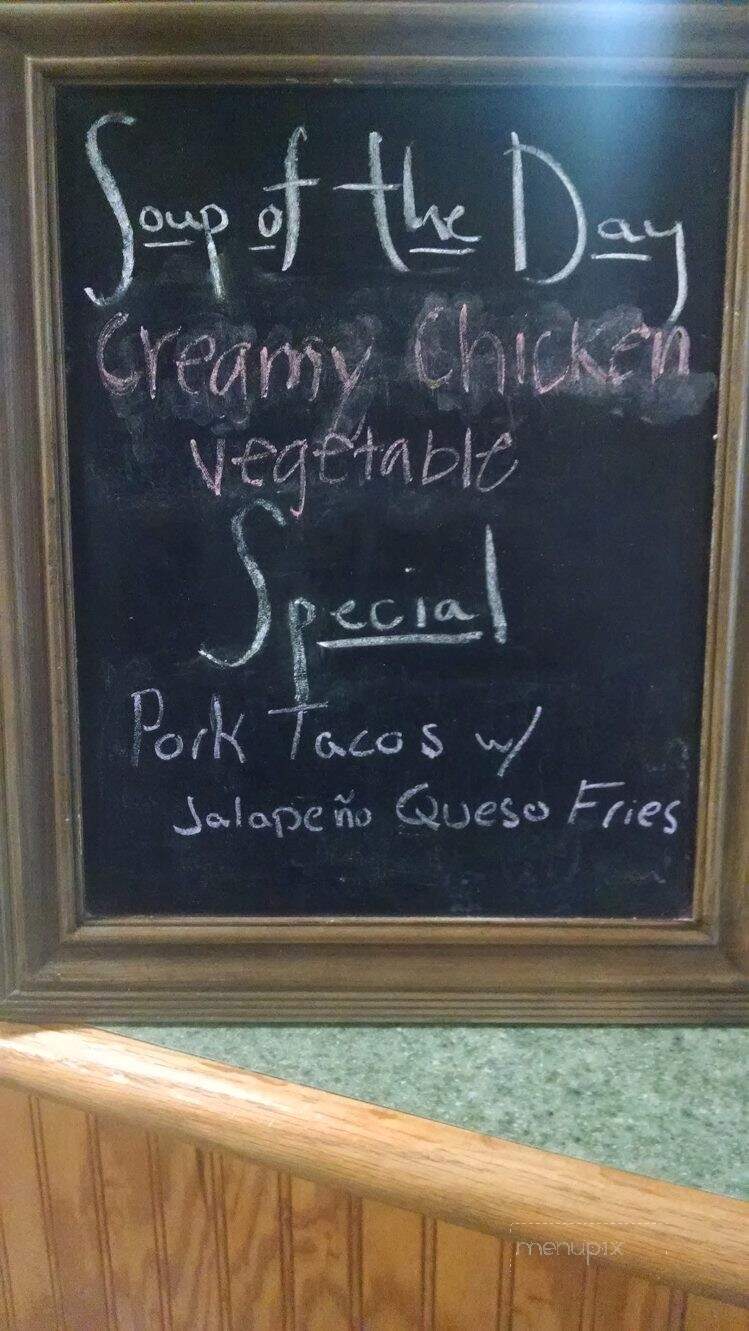 Soup of the Day
Creamy Chicken
vegetable
Special
Pork Tacos w/
Jalapeño Queso Fries
menupix